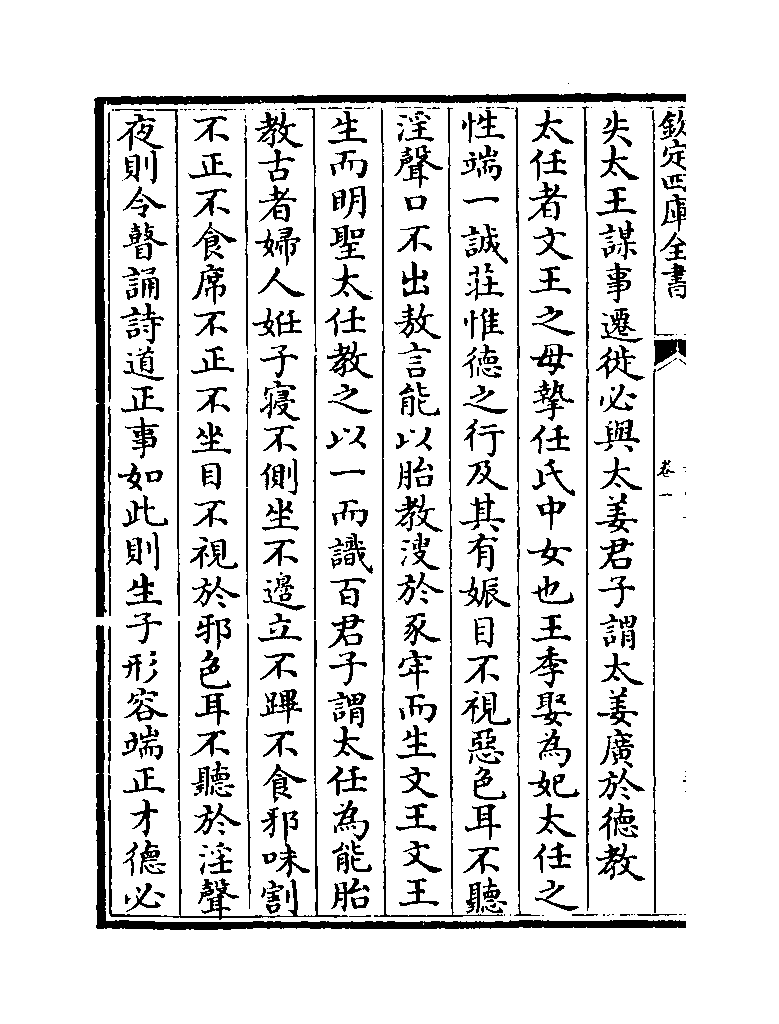 欽定四庫全書
卷一
失太王謀事遷徙必與太姜君子謂太姜廣於德教
太任者文王之母摯任氏中女也王季娶為妃太任之
性端一誠莊惟德之行及其有娠目不視惡色耳不聽
淫聲口不出敖言能以胎教溲於豕牢而生文王文王
生而明聖太任教之以一而識百君子謂太任為能胎
教古者婦人妊子寢不側坐不邉立不蹕不食邪味割
不正不食席不正不坐目不視於邪色耳不聽於淫聲
夜則令瞽誦詩道正事如此則生子形容端正才德必